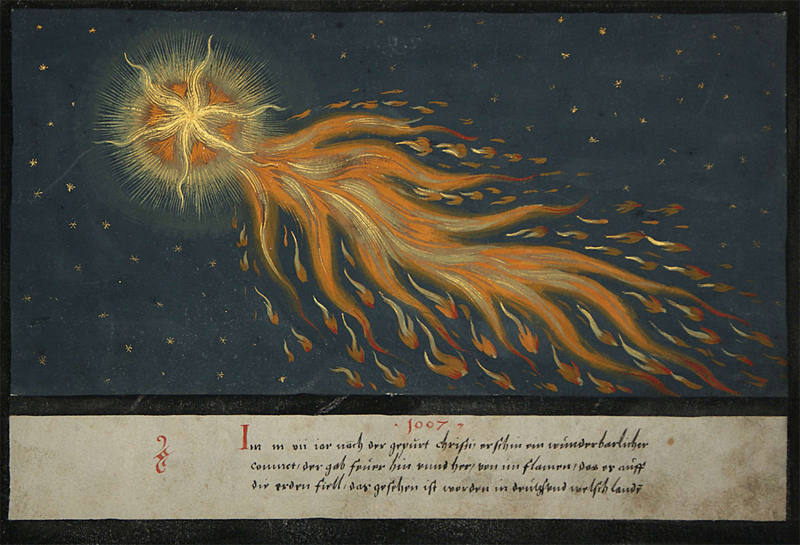 · 1007 ·
Im m vii iar nach der gepurt christi erschin ein wunderbarlicher
commet, der gab feuer hin unnd her, von im flamen, das er auff
die erden fiell, das gesehen ist worden in deutsch und welsch landt